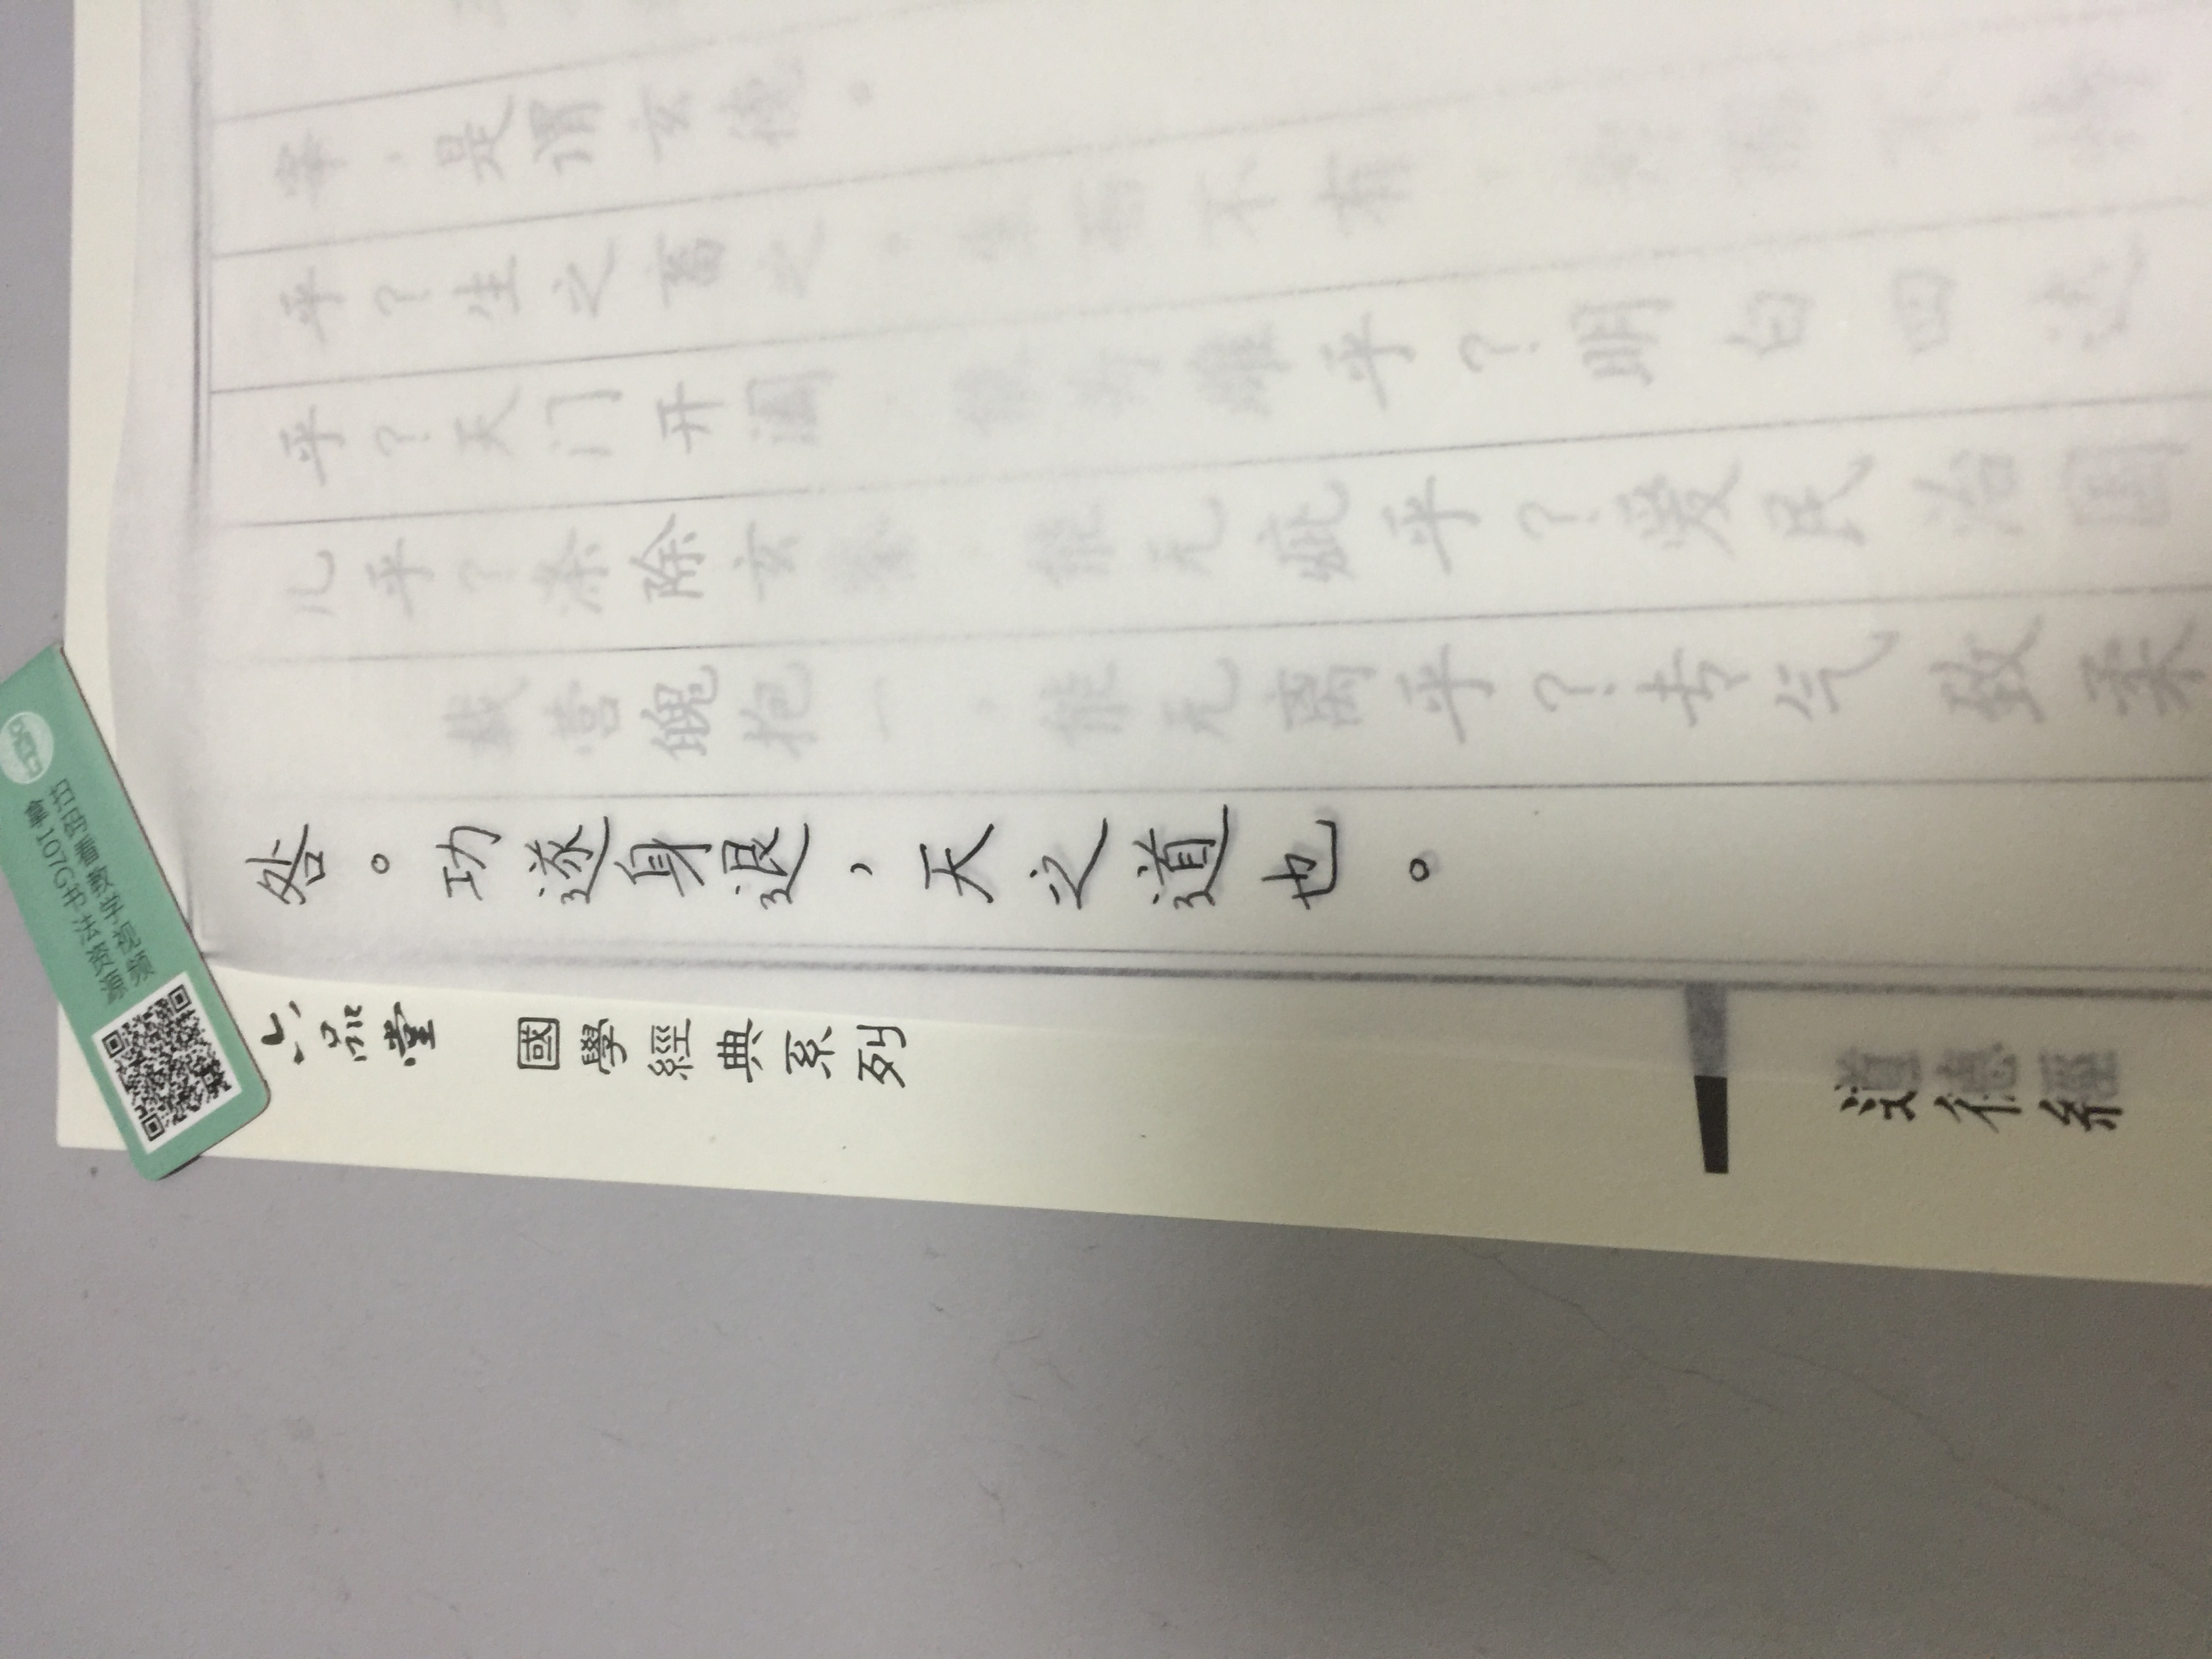 扫码看教学视频
拿107G书法资源
六品堂 國學經典系列
道德經
咎。功遂身退，天之道也。
载营魄抱一，能无离乎？专气致柔
儿乎？涤除玄鉴，能无疵乎？爱民治国
乎？天门开阖，能为雌乎？明白四达
乎？生之畜之。生而不有
宰，是谓玄德。